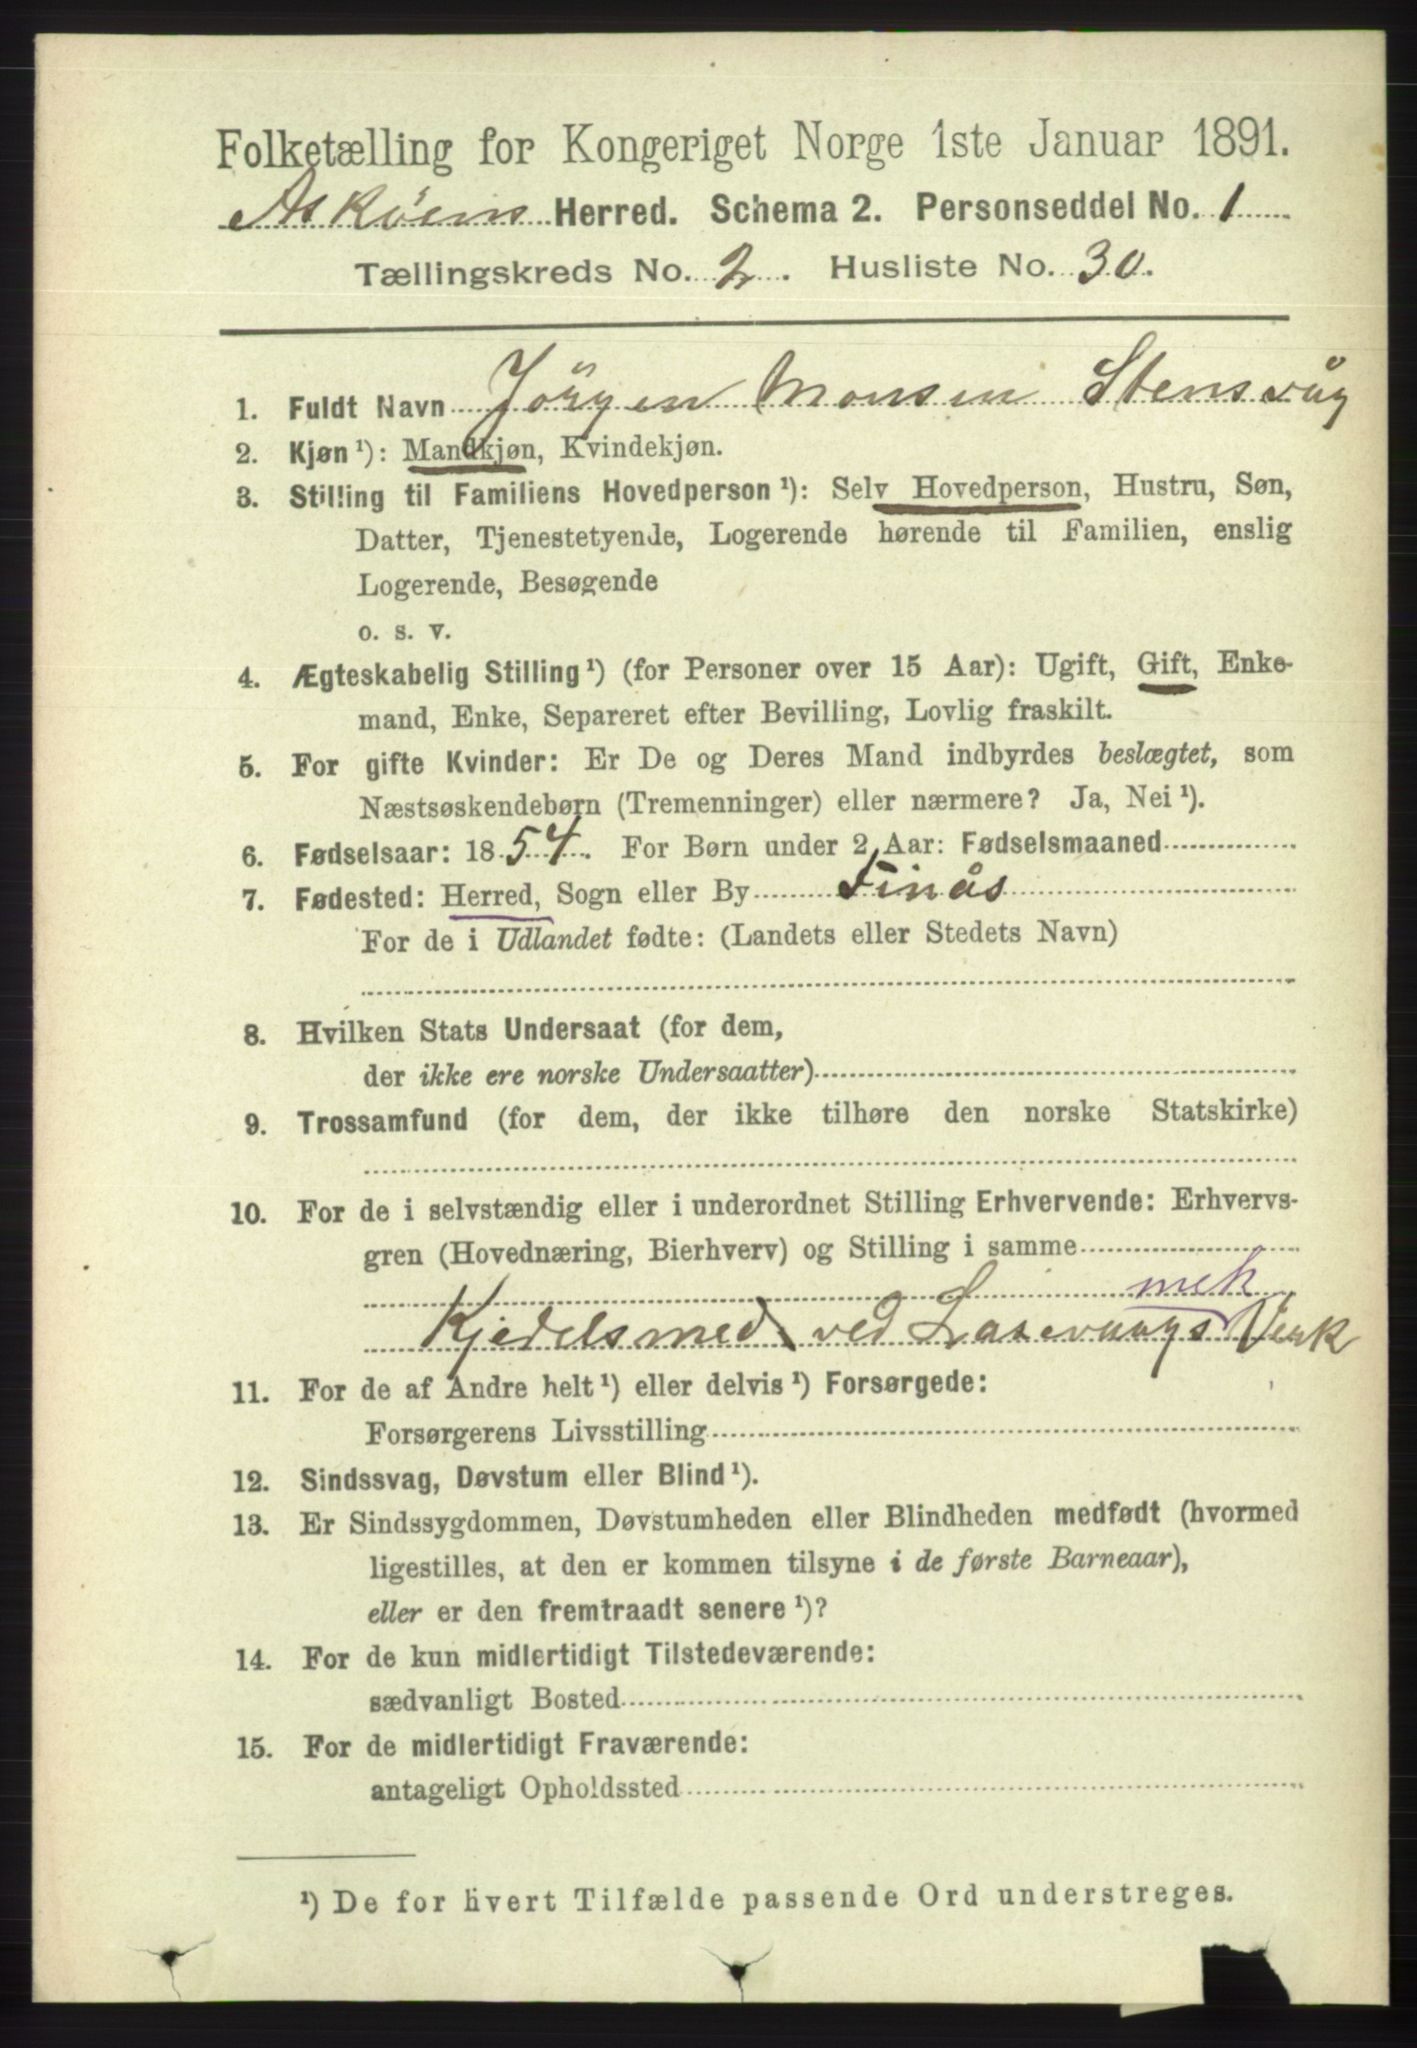 Folketælling for Kongeriget Norge 1ste Januar 1891.
Askøens Herred. Schema 2. Personseddel No. 1
Tællingskreds No. 2. Husliste No. 30.
1. Fuldt Navn Jörgen Monsen Stensvåg
2. Kjøn ¹): Mandkjøn, Kvindekjøn.
3. Stilling til Familiens Hovedperson ¹): Selv Hovedperson, Hustru, Søn,
Datter, Tjenestetyende, Logerende hørende til Familien, enslig
Logerende, Besøgende
o. s. v.
4. Ægteskabelig Stilling ¹) (for Personer over 15 Aar): Ugift, Gift, Enke-
mand, Enke, Separeret efter Bevilling, Lovlig fraskilt.
5. For gifte Kvinder: Er De og Deres Mand indbyrdes beslægtet, som
Næstsøskendebørn (Tremenninger) eller nærmere? Ja, Nei ¹).
6. Fødselsaar: 1854. For Børn under 2 Aar: Fødselsmaaned
7. Fødested: Herred, Sogn eller By Finås
For de i Udlandet fødte: (Landets eller Stedets Navn)
8. Hvilken Stats Undersaat (for dem,
der ikke ere norske Undersaatter)
9. Trossamfund (for dem, der ikke tilhøre den norske Statskirke)
10. For de i selvstændig eller i underordnet Stilling Erhvervende: Erhvervs-
gren (Hovednæring, Bierhverv) og Stilling i samme
mek
Kjedelsmed ved Laxevaags Verk
11. For de af Andre helt ¹) eller delvis ¹) Forsørgede:
Forsørgerens Livsstilling
12. Sindssvag, Døvstum eller Blind ¹).
13. Er Sindssygdommen, Døvstumheden eller Blindheden medfødt (hvormed
ligestilles, at den er kommen tilsyne i de første Barneaar),
eller er den fremtraadt senere ¹)?
14. For de kun midlertidigt Tilstedeværende:
sædvanligt Bosted
15. For de midlertidigt Fraværende:
antageligt Opholdssted
¹) De for hvert Tilfælde passende Ord understreges.